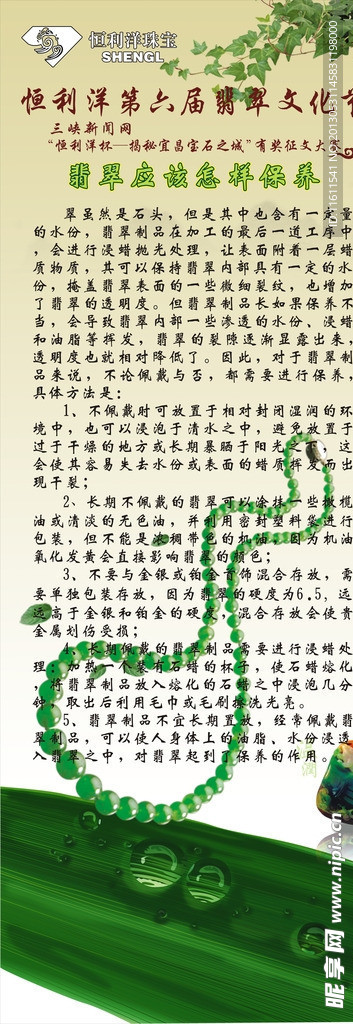 恒利洋珠宝
SHENGL
恒利洋第六届翡翠文化节
三峡新闻网
“恒利洋杯—揭秘宜昌宝石之城”有奖征文大赛
翡翠应该怎样保养
翠虽然是石头，但是其中也含有一定量
的水份，翡翠制品在加工的最后一道工序中
，会进行浸蜡抛光处理，让表面附着一层蜡
质物质，其可以保持翡翠内部具有一定的水
份，掩盖翡翠表面的一些微细裂纹，也增加
了翡翠的透明度。但翡翠制品长如果保养不
当，会导致翡翠内部一些渗透的水份、浸蜡
和油脂等挥发，翡翠的裂隙逐渐显露出来，
透明度也就相对降低了。因此，对于翡翠制
品来说，不论佩戴与否，都需要进行保养，
具体方法是：
1、不佩戴时可放置于相对封闭湿润的环
境中，也可以浸泡于清水之中，避免放置于
过于干燥的地方或长期暴晒于阳光之下，这
会使其容易失去水份或表面的蜡质挥发而出
现干裂；
2、长期不佩戴的翡翠可以涂抹一些橄榄
油或清淡的无色油，并利用密封塑料袋进行
包装，但不能是浓稠带色的机油，因为机油
氧化发黄会直接影响翡翠的颜色；
3、不要与金银或铂金首饰混合存放，需
要单独包装存放，因为翡翠的硬度为6.5，远
远高于金银和铂金的硬度，混合存放会使贵
金属划伤受损；
4、长期佩戴的翡翠制品需要进行浸蜡处
理：加热一个装有石蜡的杯子，使石蜡熔化
，将翡翠制品放入熔化的石蜡之中浸泡几分
钟，取出后利用毛巾或毛刷擦洗光亮。
5、翡翠制品不宜长期置放，经常佩戴翡
翠制品，可以使人身体上的油脂、水份浸透
入翡翠之中，对翡翠起到了保养的作用。
润
昵享网 www.nipic.cn